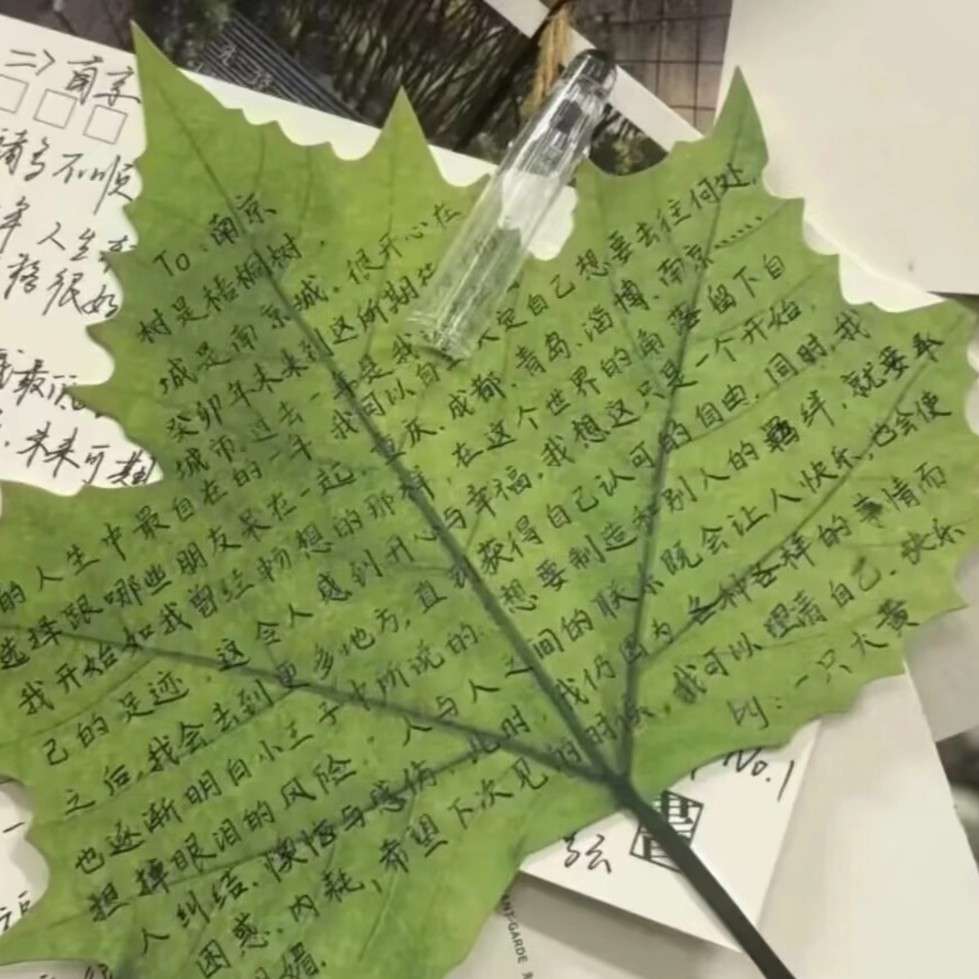 To. 南京
树是梧桐树,
城是南京城。很开心在
癸卯年末来到这所期
城市。过去一年是我
的人生中最自在的一年,我可以自 定自己想要去往何处,
选择跟哪些朋友呆在一起。重庆、成都、青岛、淄博、南京……
我开始如我曾经畅想的那样,在这个世界的角落留下自
己的足迹,这令人感到开心与幸福,我想这只是一个开始
之后,我会去到更多地方,直到获得自己认可的自由。同时,我
也逐渐明白小王子中所说的,想要制造和别人的羁绊,就要承
担掉眼泪的风险。人与人之间的联系既会让人快乐,也会使
人纠结、懊悔与感伤。此时,我仍因为各种各样的事情而
困惑、内耗,希望下次见 的时候,我可以理清自己,快乐
明媚.
一只大黄
南京
不顺
人生
很好
未来可期
No.1
弦